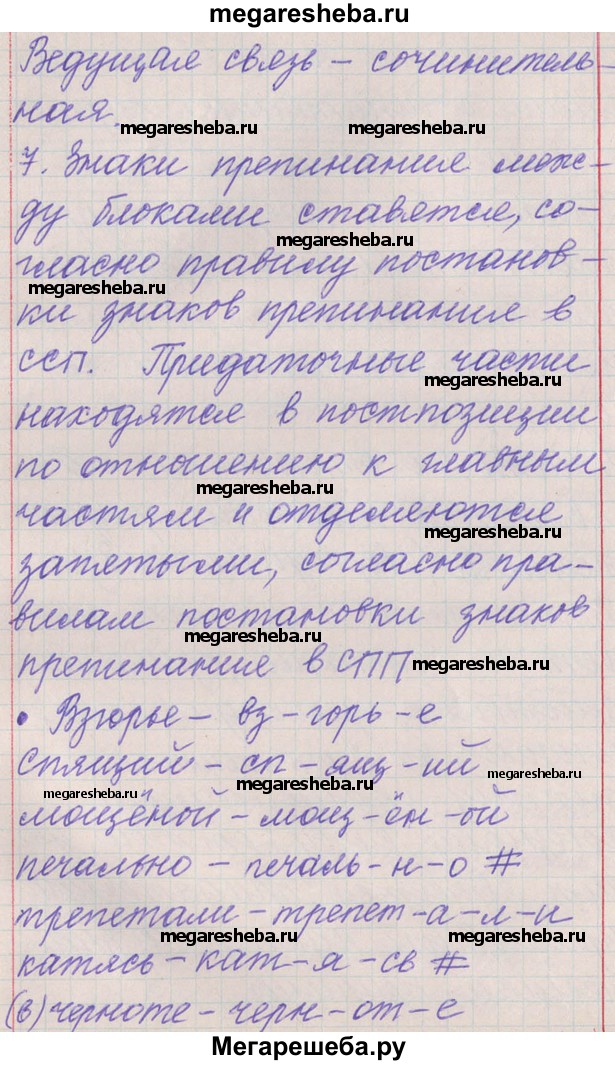 megaresheba.ru
Ведущая связь – сочинитель-
ная.
megaresheba.ru megaresheba.ru
7. Знаки препинания меж-
ду блоками ставятся, со-
megaresheba.ru
гласно правилу постанов-
megaresheba.ru
ки знаков препинания в
ССП. Придаточные части
megaresheba.ru
находятся в постпозиции
по отношению к главным
megaresheba.ru
частям и отделяются
megaresheba.ru
запятыми, согласно пра-
вилам постановки знаков
megaresheba.ru
препинания в СПП
megaresheba.ru
• Взгорье – вз – горь – е
Спящий – сп – ящ – ий
megaresheba.ru megaresheba.ru megaresheba.ru
мощёной – мощ – ён – ой
печально – печаль – н – о #
трепетали – трепет – а – л – и
megaresheba.ru megaresheba.ru
катясь – кат – я – сь #
(в) черноте – черн – от – е
Мегарешеба.ру